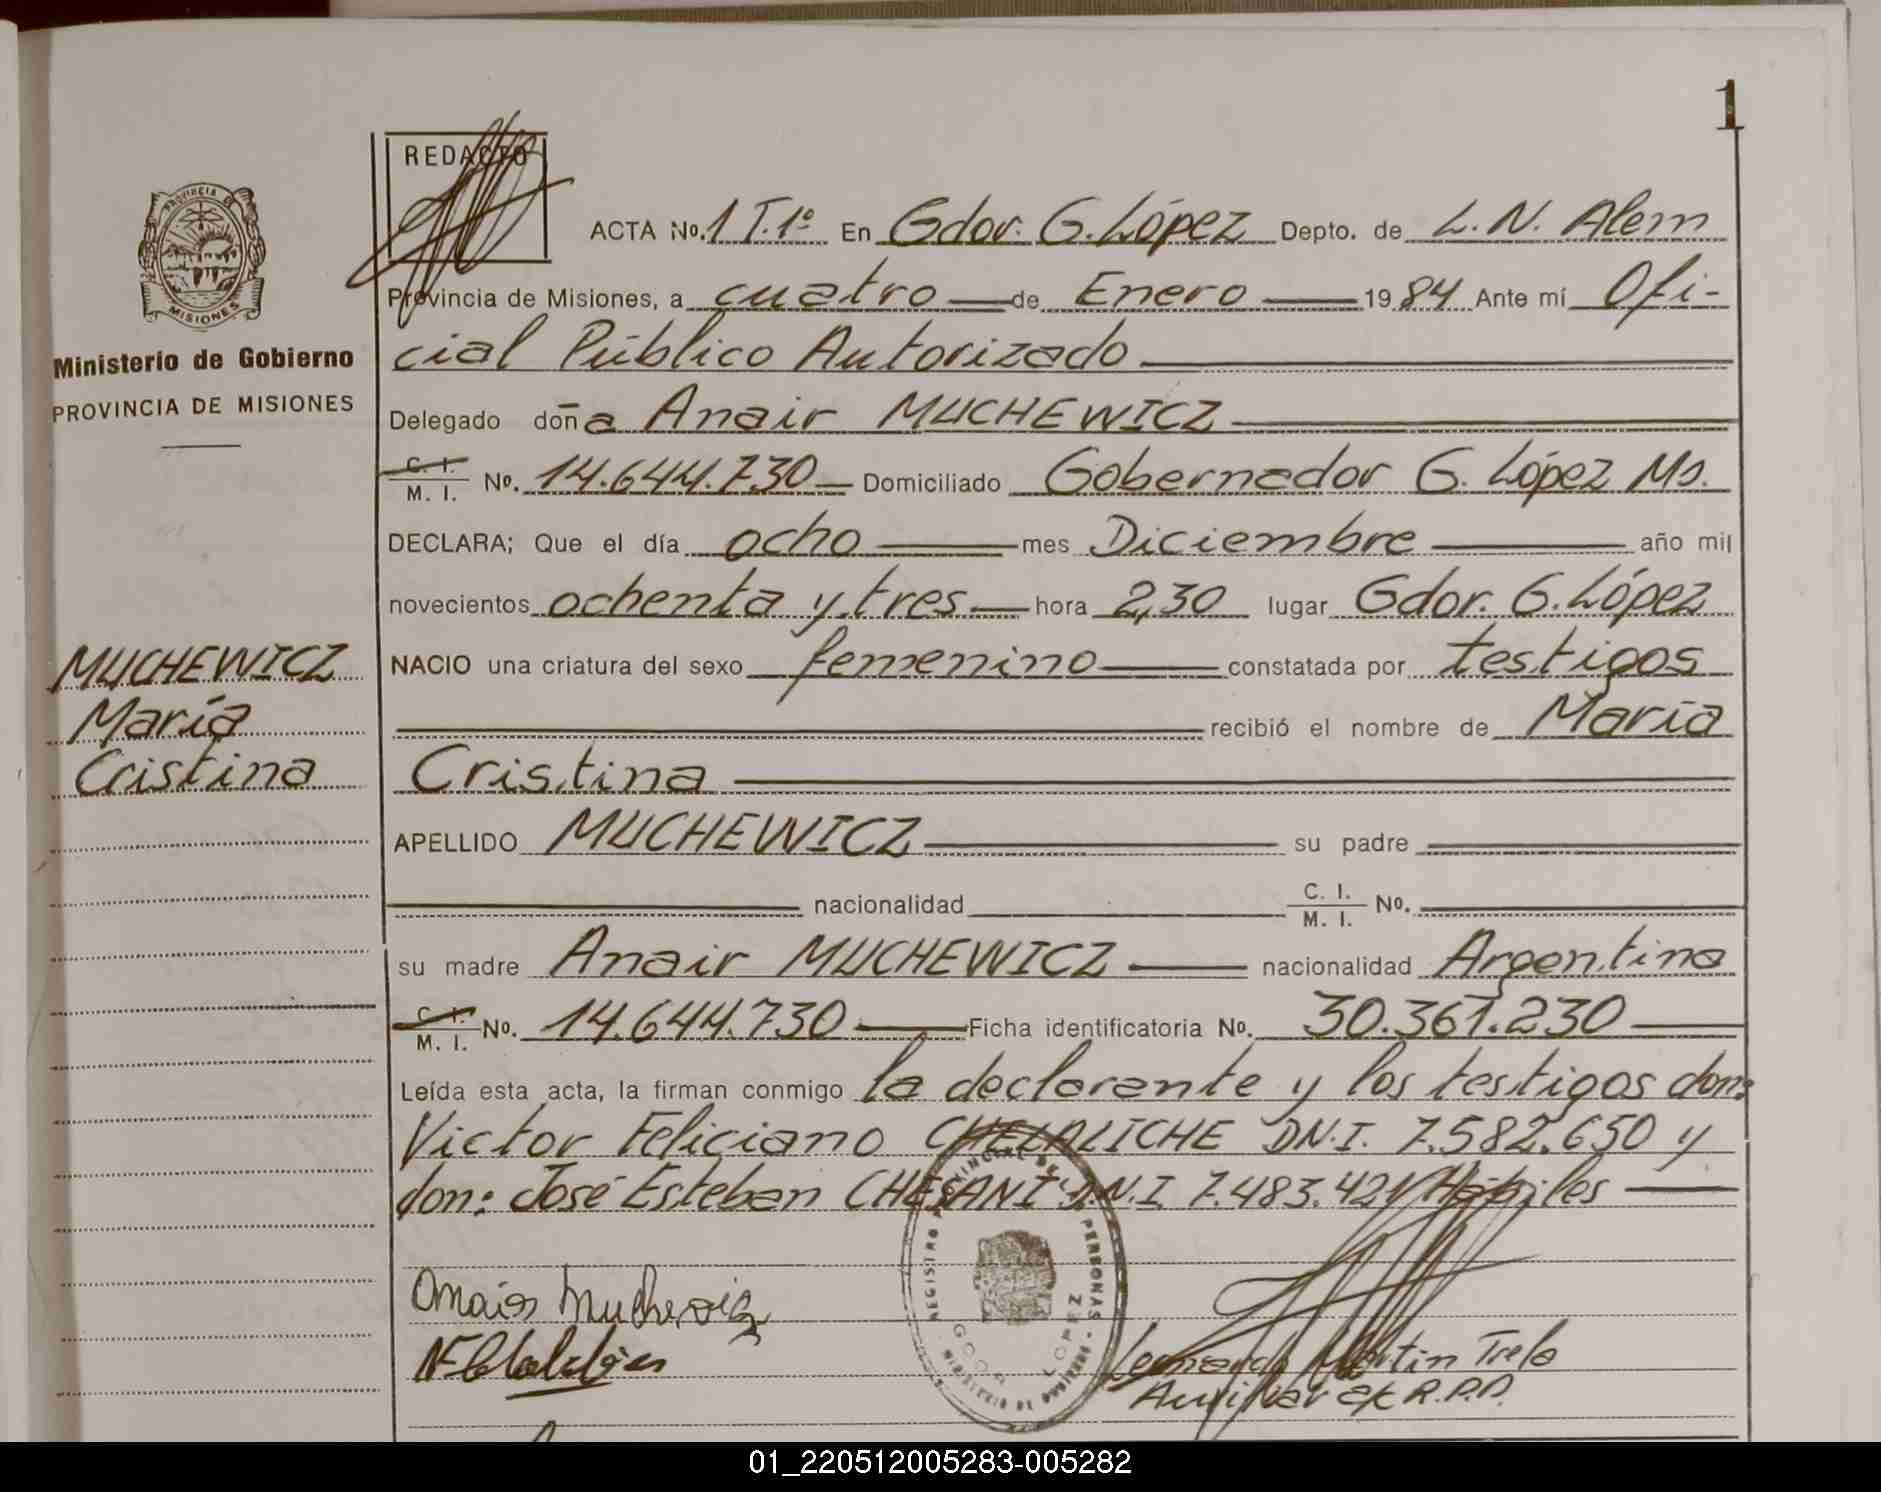 1
REDACTO
PROVINCIA DE
MISIONES
Ministerio de Gobierno
PROVINCIA DE MISIONES
ACTA No. 1 T.1º En Gdor. G. López Depto. de L. N. Alem
Provincia de Misiones, a cuatro de Enero 1984 Ante mí Ofi-
cial Público Autorizado
Delegado doña Anair MUCHEWICZ
C. I. / M. I. No. 14.644.730 Domiciliado Gobernador G. López Ms.
DECLARA; Que el día ocho mes Diciembre año mil
novecientos ochenta y tres hora 2,30 lugar Gdor. G. López
NACIO una criatura del sexo femenino constatada por testigos
recibió el nombre de María
Cristina
APELLIDO MUCHEWICZ su padre
nacionalidad C. I. / M. I. No.
su madre Anair MUCHEWICZ nacionalidad Argentina
C. I. / M. I. No. 14.644.730 Ficha identificatoria No. 30.361.230
Leída esta acta, la firman conmigo la declarante y los testigos don:
Victor Feliciano CHELALICHE D.N.I. 7.582.650 y
don: José Esteban CHESANI D.N.I 7.483.421 Hábiles
MUCHEWICZ
María
Cristina
Anair Muchewicz
REGISTRO PROVINCIAL DE PERSONAS - MINISTERIO DE GOBIERNO
GDOR. LOPEZ
Martin Trela
Auxiliar R.P.P.
01_220512005283-005282